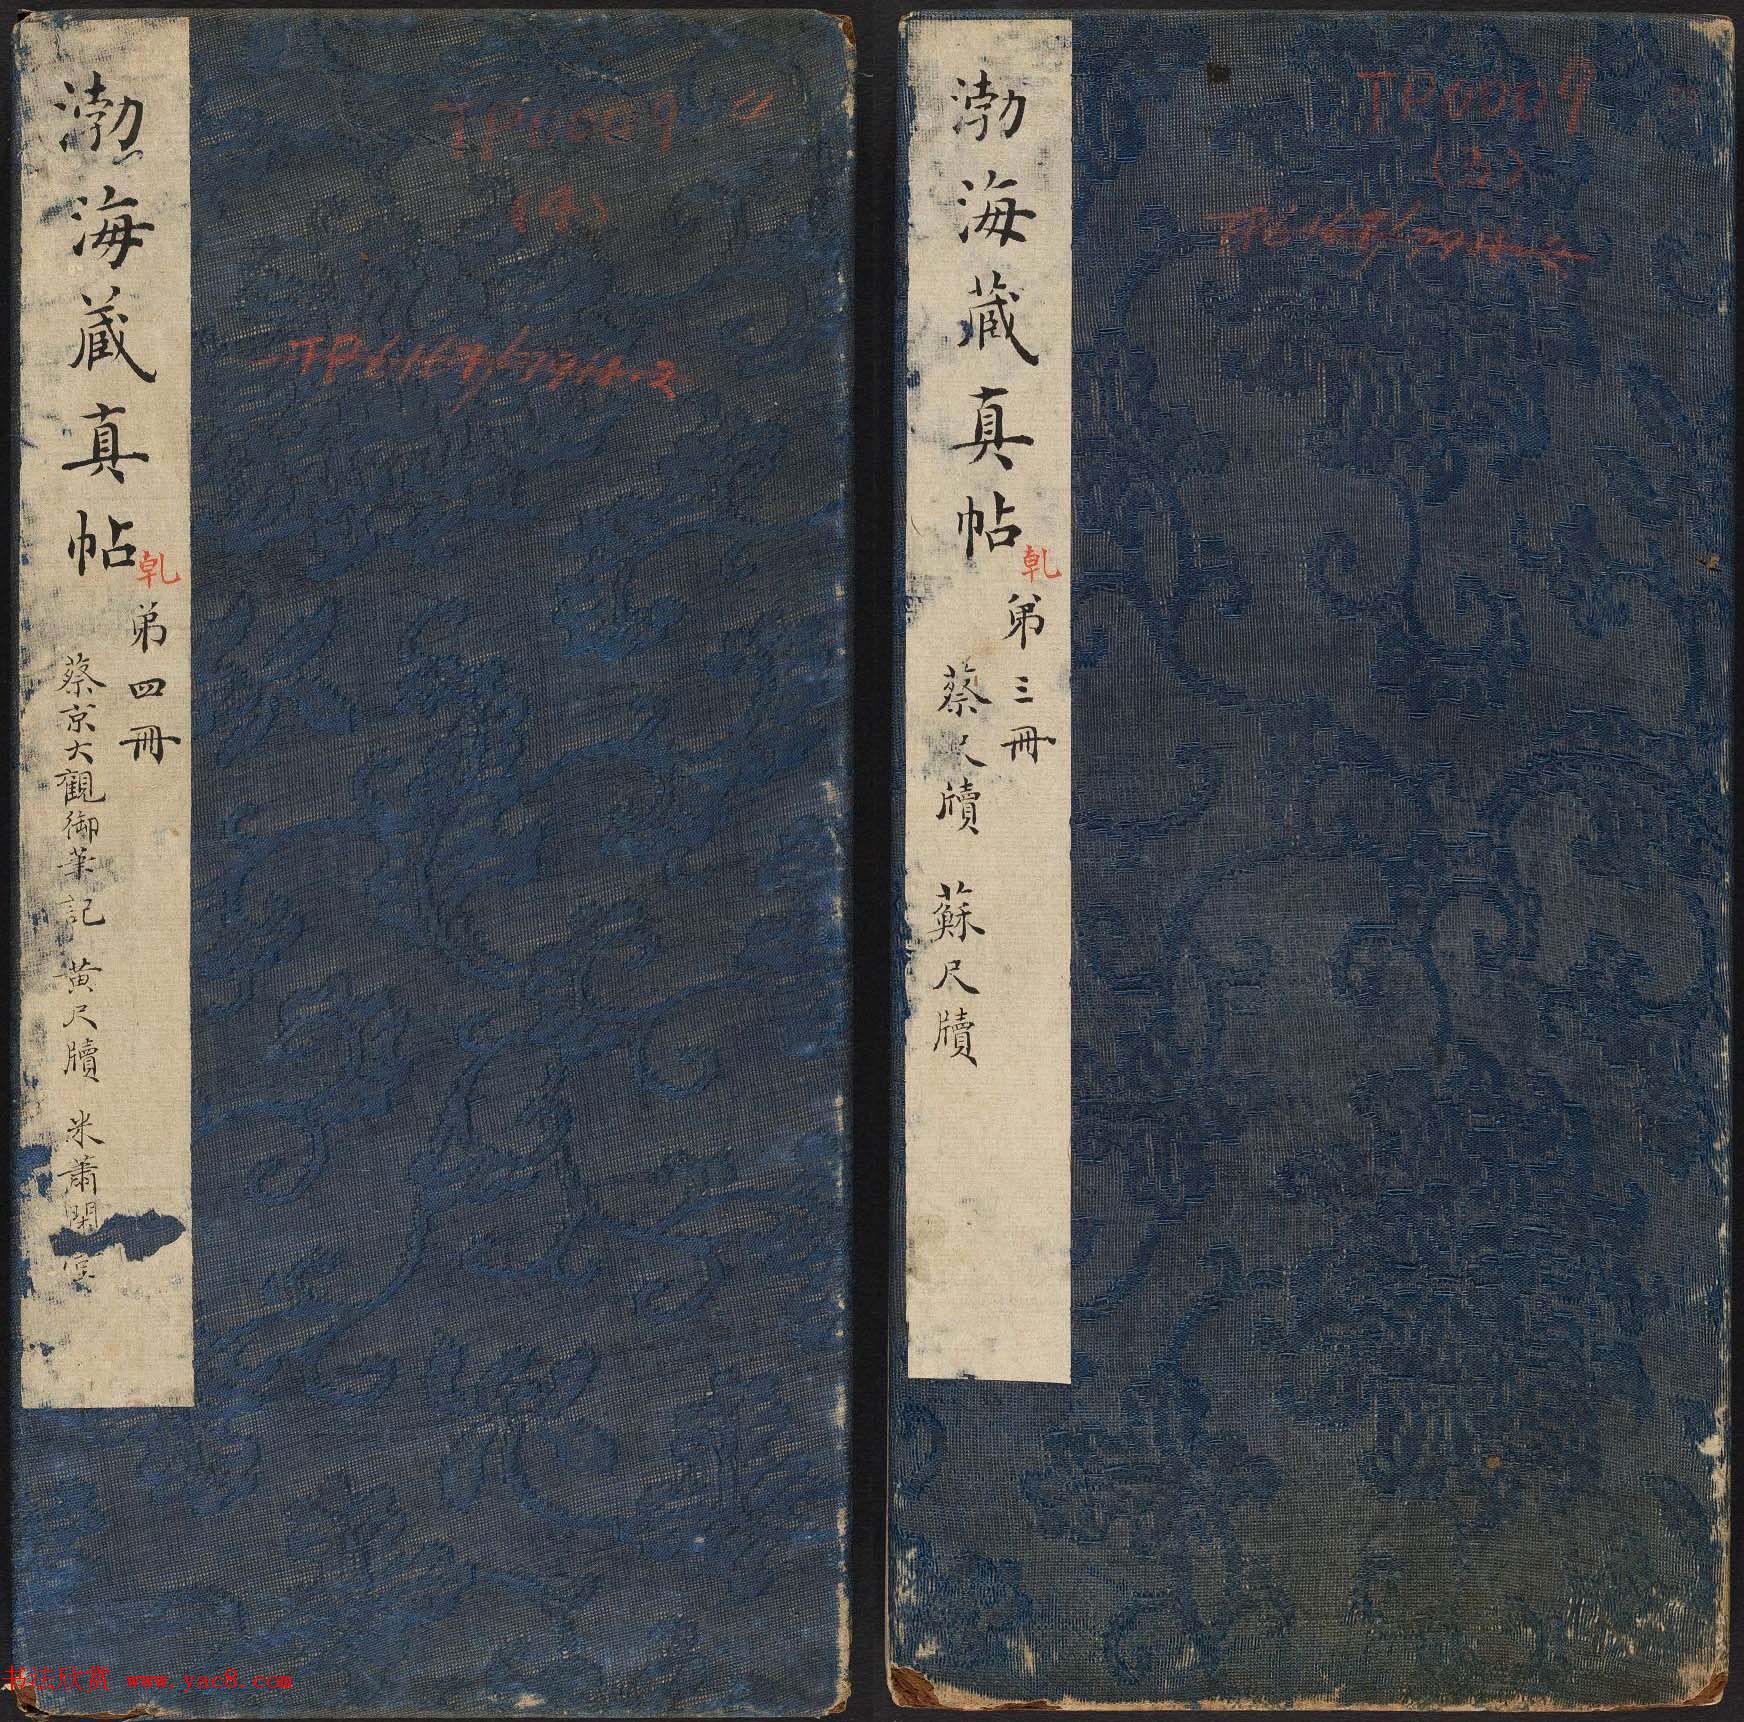 渤海藏真帖
乹
弟四冊
蔡京大觀御筆記 黃尺牘 米蕭閑
TP0009
(4)
渤海藏真帖
乹
弟三冊
蔡尺牘 蘇尺牘
TP0009
(3)
书法欣赏 www.yac8.com